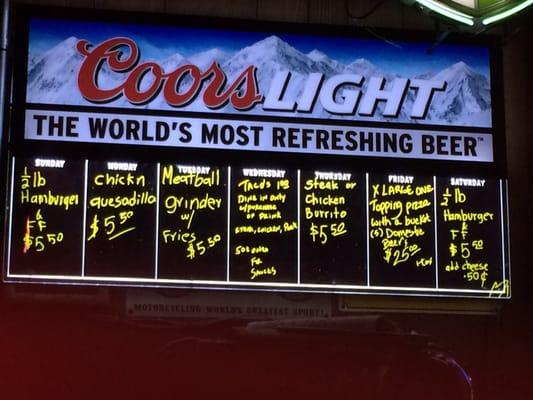 Coors LIGHT
THE WORLD'S MOST REFRESHING BEER
SUNDAY
1/2 lb
Hamburger
&
FF
$5.50
MONDAY
Chickn
quesadilla
$5.50
TUESDAY
Meatball
grinder
w/
Fries
$5.50
WEDNESDAY
Dine in only
w/purchase
of Drink
Steak, chicken, Pork
50¢ extra
THURSDAY
Steak or
Chicken
Burrito
$5.50
FRIDAY
X LARGE ONE
Topping pizza
with a bucket
(5) Domestic
Beer
$25.00
SATURDAY
1/2 lb
Hamburger
&
FF
$5.50
add cheese
.50¢
MOTORCYCLING WORLD'S GREATEST SPORT!